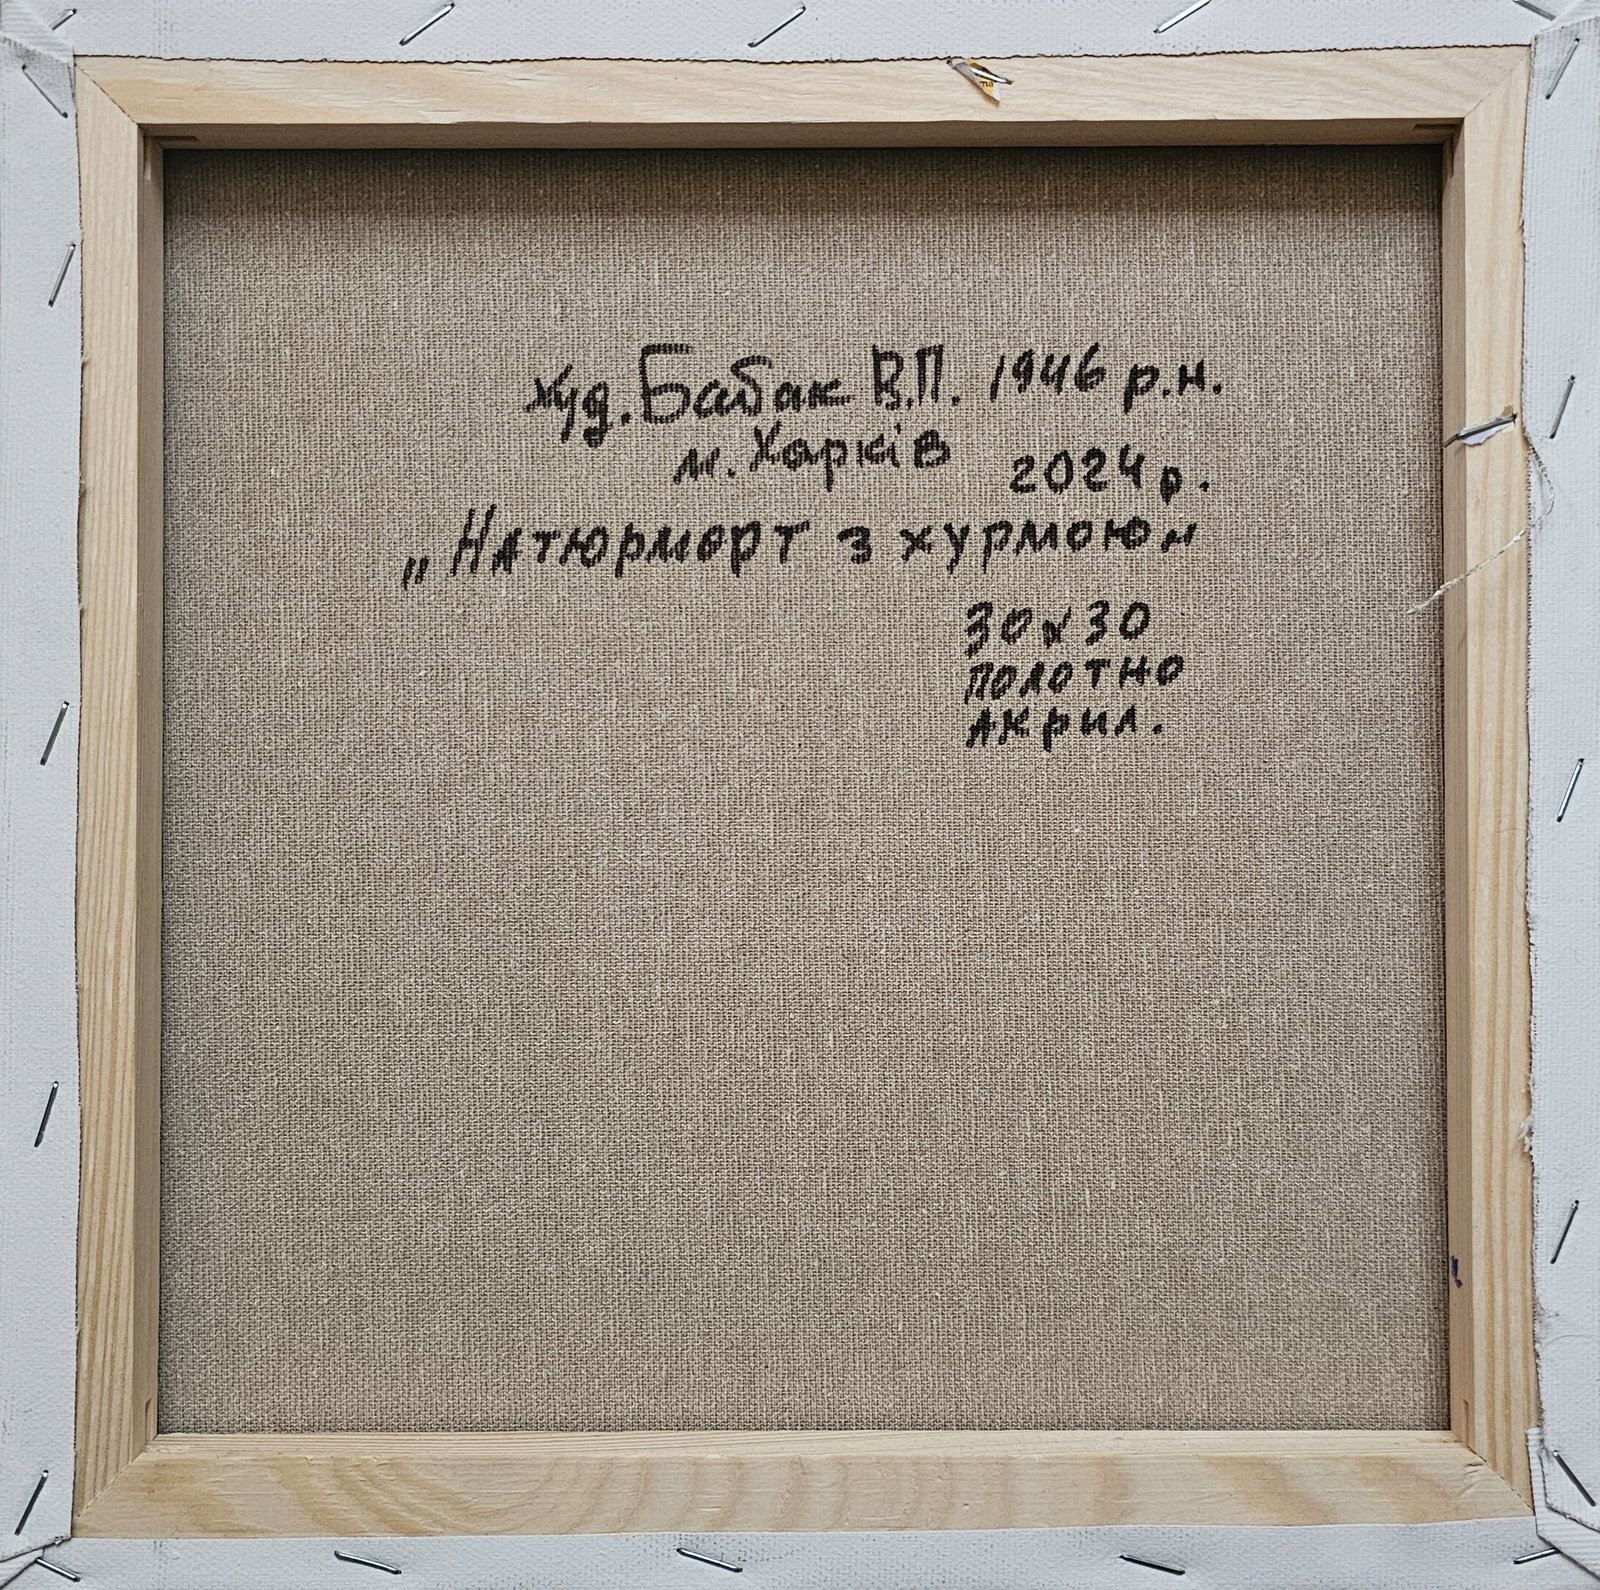 худ. Бабак В.П. 1946 р.н.
м. Харків 2024 р.
„Натюрморт з хурмою"
30х30
полотно
акрил.